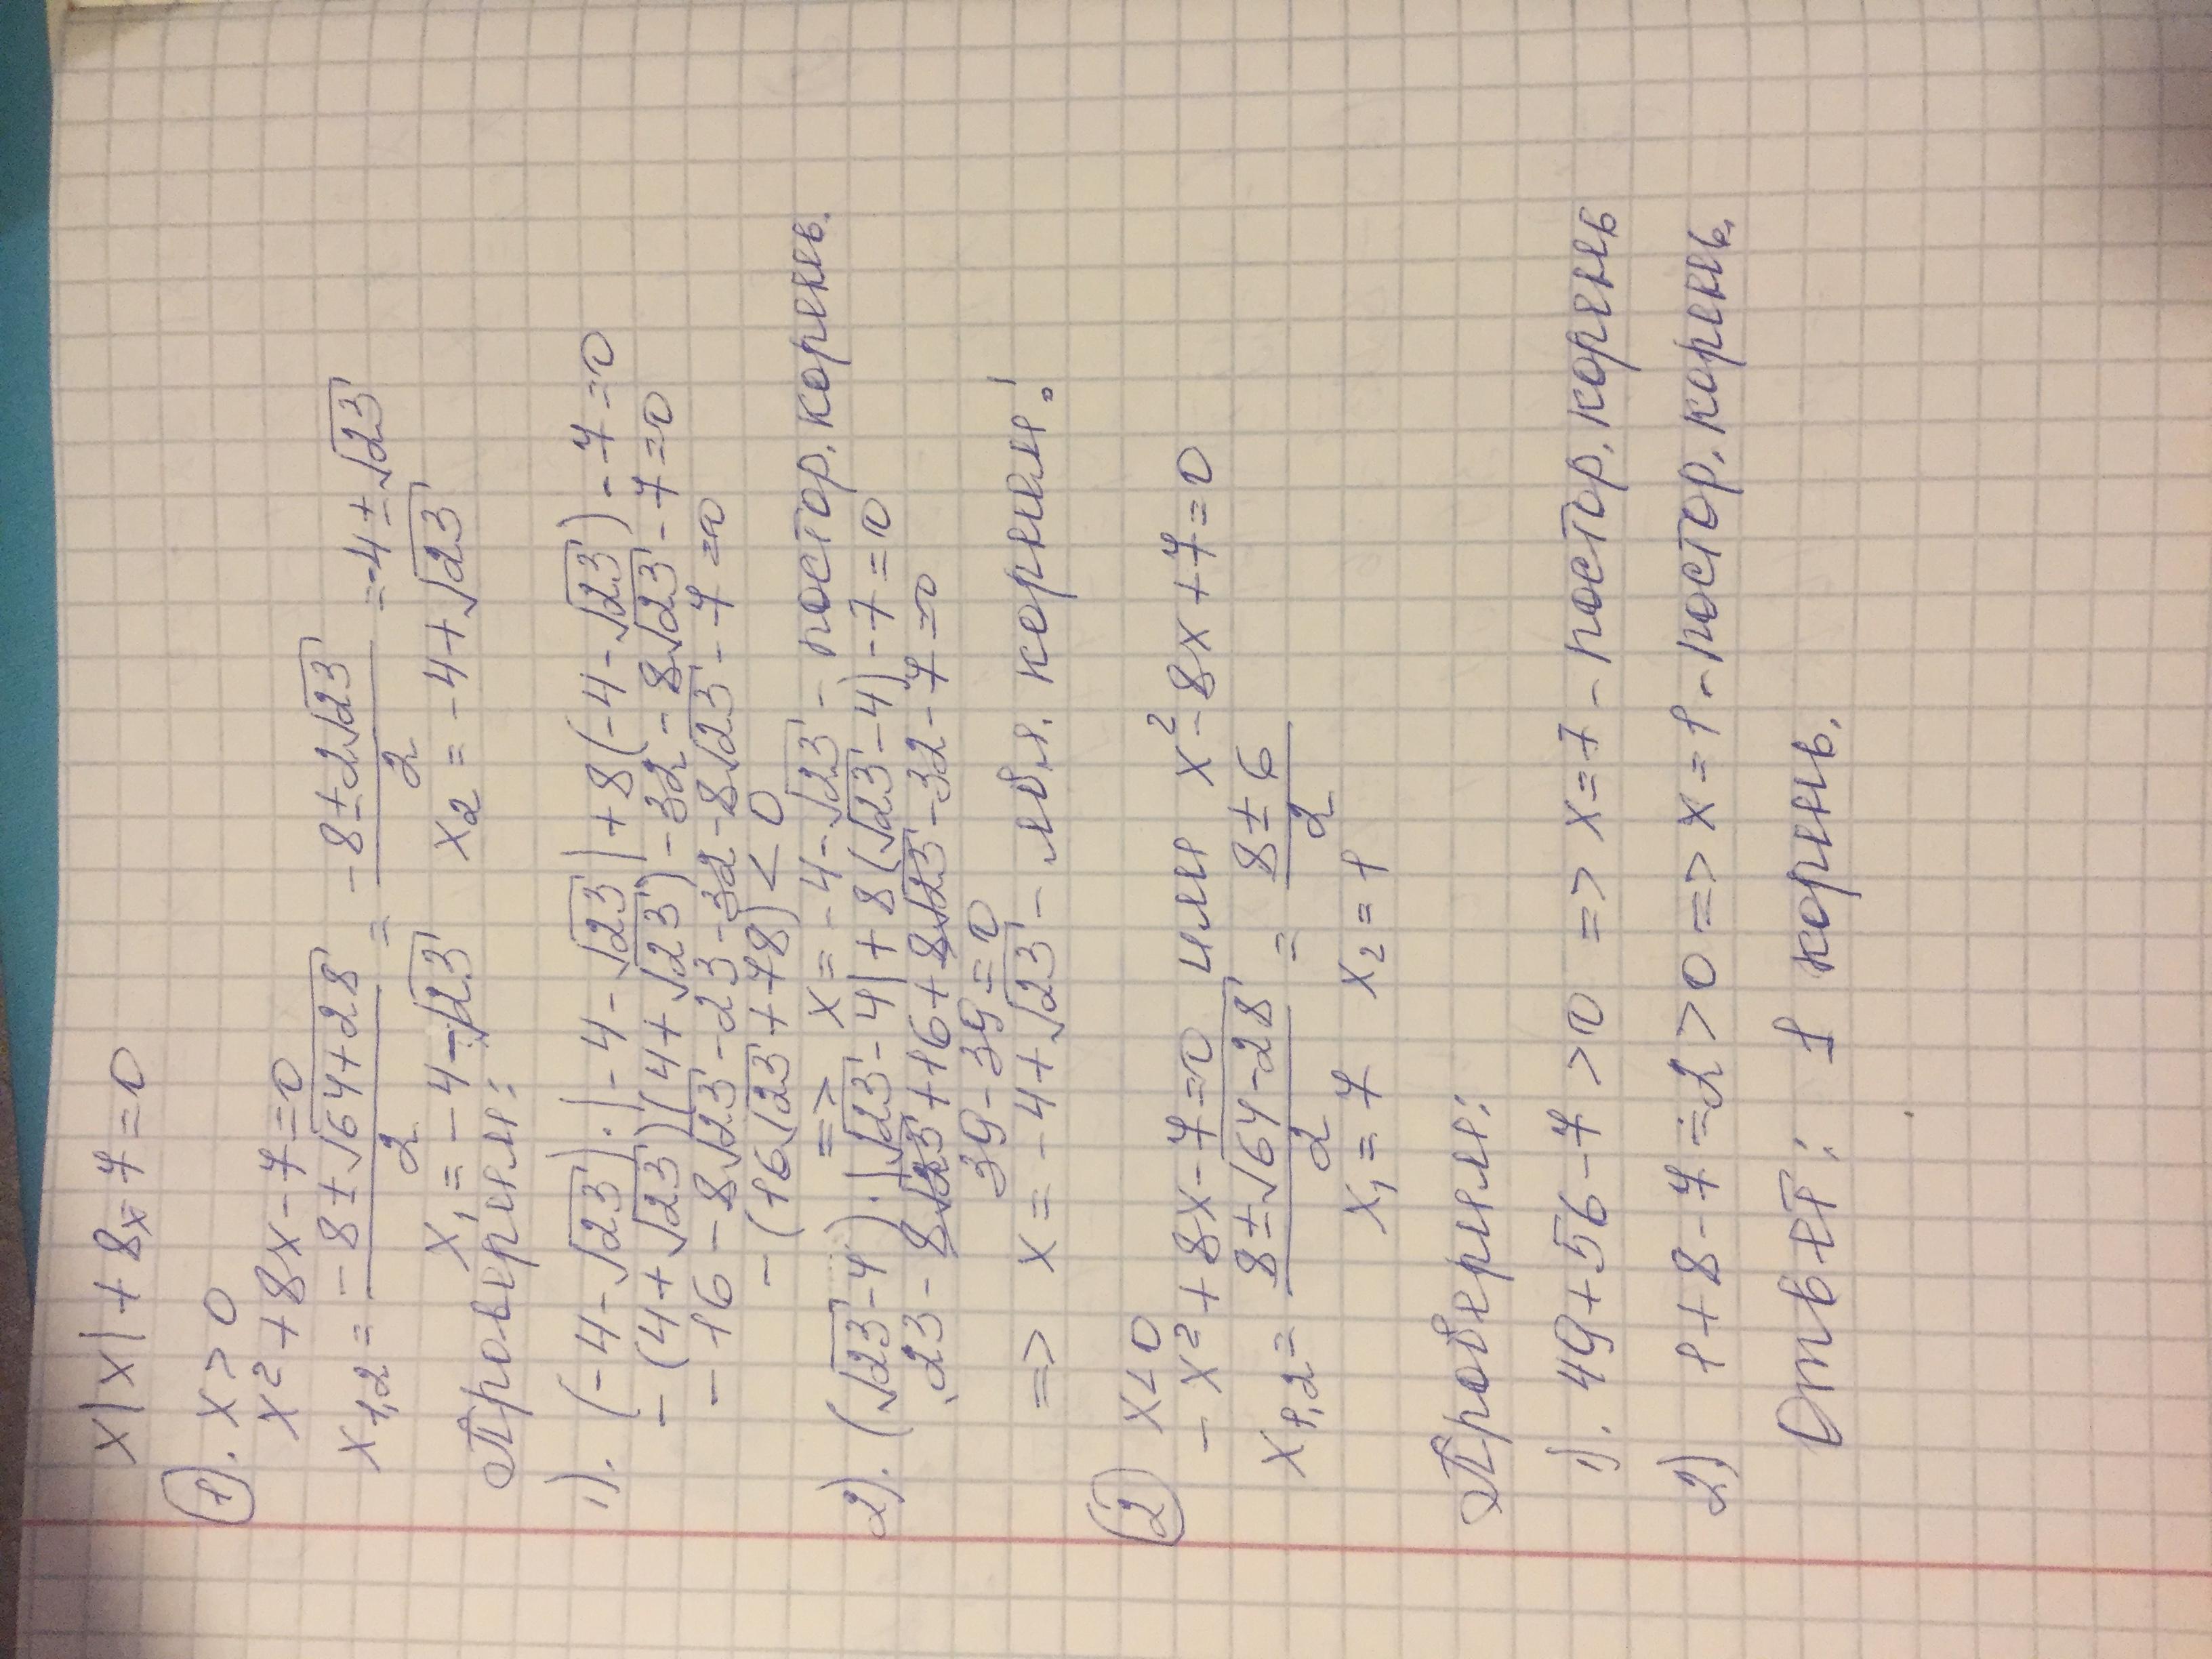 x|x| + 8x - 7 = 0
①. x > 0
x² + 8x - 7 = 0
x₁,₂ = (-8 ± √(64+28))/2 = (-8 ± 2√23)/2 = -4 ± √23
x₁ = -4 - √23 x₂ = -4 + √23
Проверим:
1). (-4 - √23)·|-4 - √23| + 8(-4 - √23) - 7 = 0
-(4 + √23)(4 + √23) - 32 - 8√23 - 7 = 0
-16 - 8√23 - 23 - 32 - 8√23 - 7 = 0
-(16√23 + 78) < 0
=> x = -4 - √23 - постор. корень.
2). (√23 - 4)·|√23 - 4| + 8(√23 - 4) - 7 = 0
23 - 8√23 + 16 + 8√23 - 32 - 7 = 0
39 - 39 = 0
=> x = -4 + √23 - явл. корнем!
② x < 0
-x² + 8x - 7 = 0 или x² - 8x + 7 = 0
x₁,₂ = (8 ± √(64-28))/2 = (8 ± 6)/2
x₁ = 7 x₂ = 1
Проверим:
1). 49 + 56 - 7 > 0 => x = 7 - постор. корень
2) 1 + 8 - 7 = 2 > 0 => x = 1 - постор. корень.
Ответ: 1 корень.